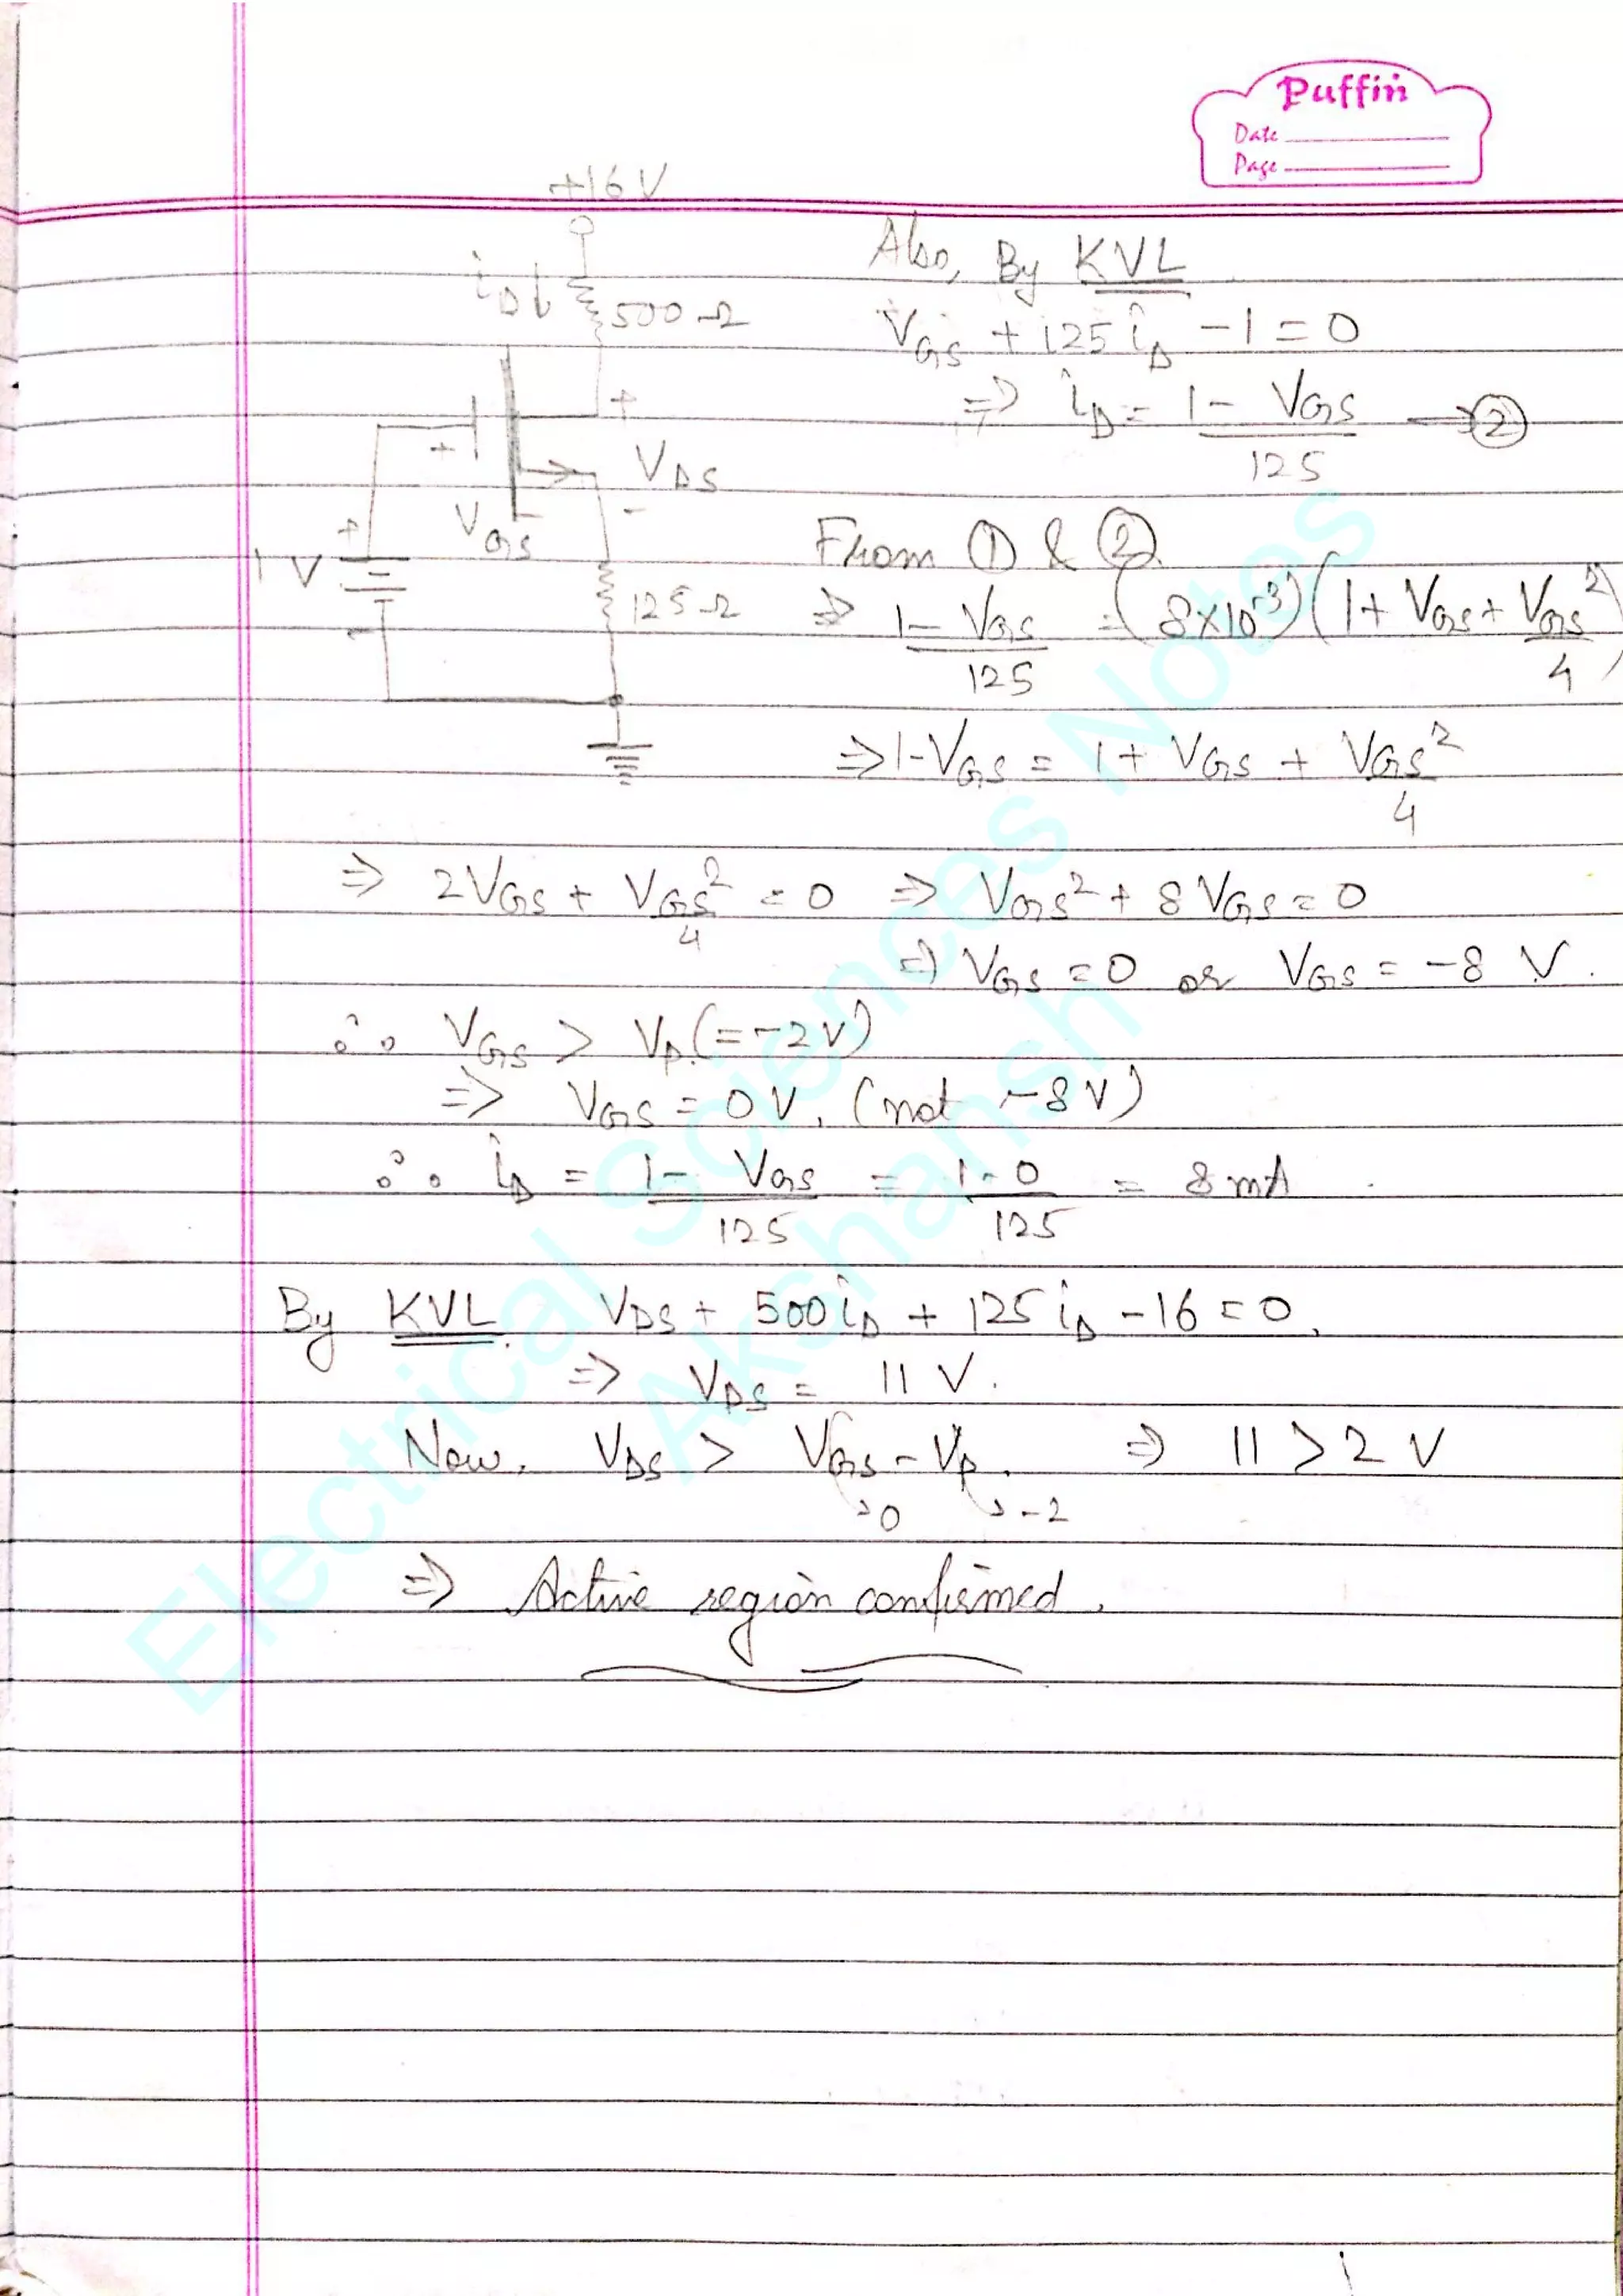 Puffin
Date
Page
+16 V
i_D ↓
500 Ω
+
V_DS
-
+
V_GS
-
+
1 V
-
125 Ω
Also, By KVL
V_GS + 125 i_D - 1 = 0
⇒ i_D = (1 - V_GS)/125 → ②
From ① & ②
⇒ (1 - V_GS)/125 = (8×10^-3)(1 + V_GS + V_GS²/4)
⇒ 1 - V_GS = 1 + V_GS + V_GS²/4
⇒ 2V_GS + V_GS²/4 = 0 ⇒ V_GS² + 8 V_GS = 0
⇒ V_GS = 0 or V_GS = -8 V.
∴ V_GS > V_P (= -2V)
⇒ V_GS = 0V. (not -8V)
∴ i_D = (1 - V_GS)/125 = (1 - 0)/125 = 8 mA
By KVL. V_DS + 500 i_D + 125 i_D - 16 = 0.
⇒ V_DS = 11 V.
Now. V_DS > V_GS - V_P. ⇒ 11 > 2 V
→0 → -2
⇒ Active region confirmed.
Electrical Sciences Notes
Akshansh